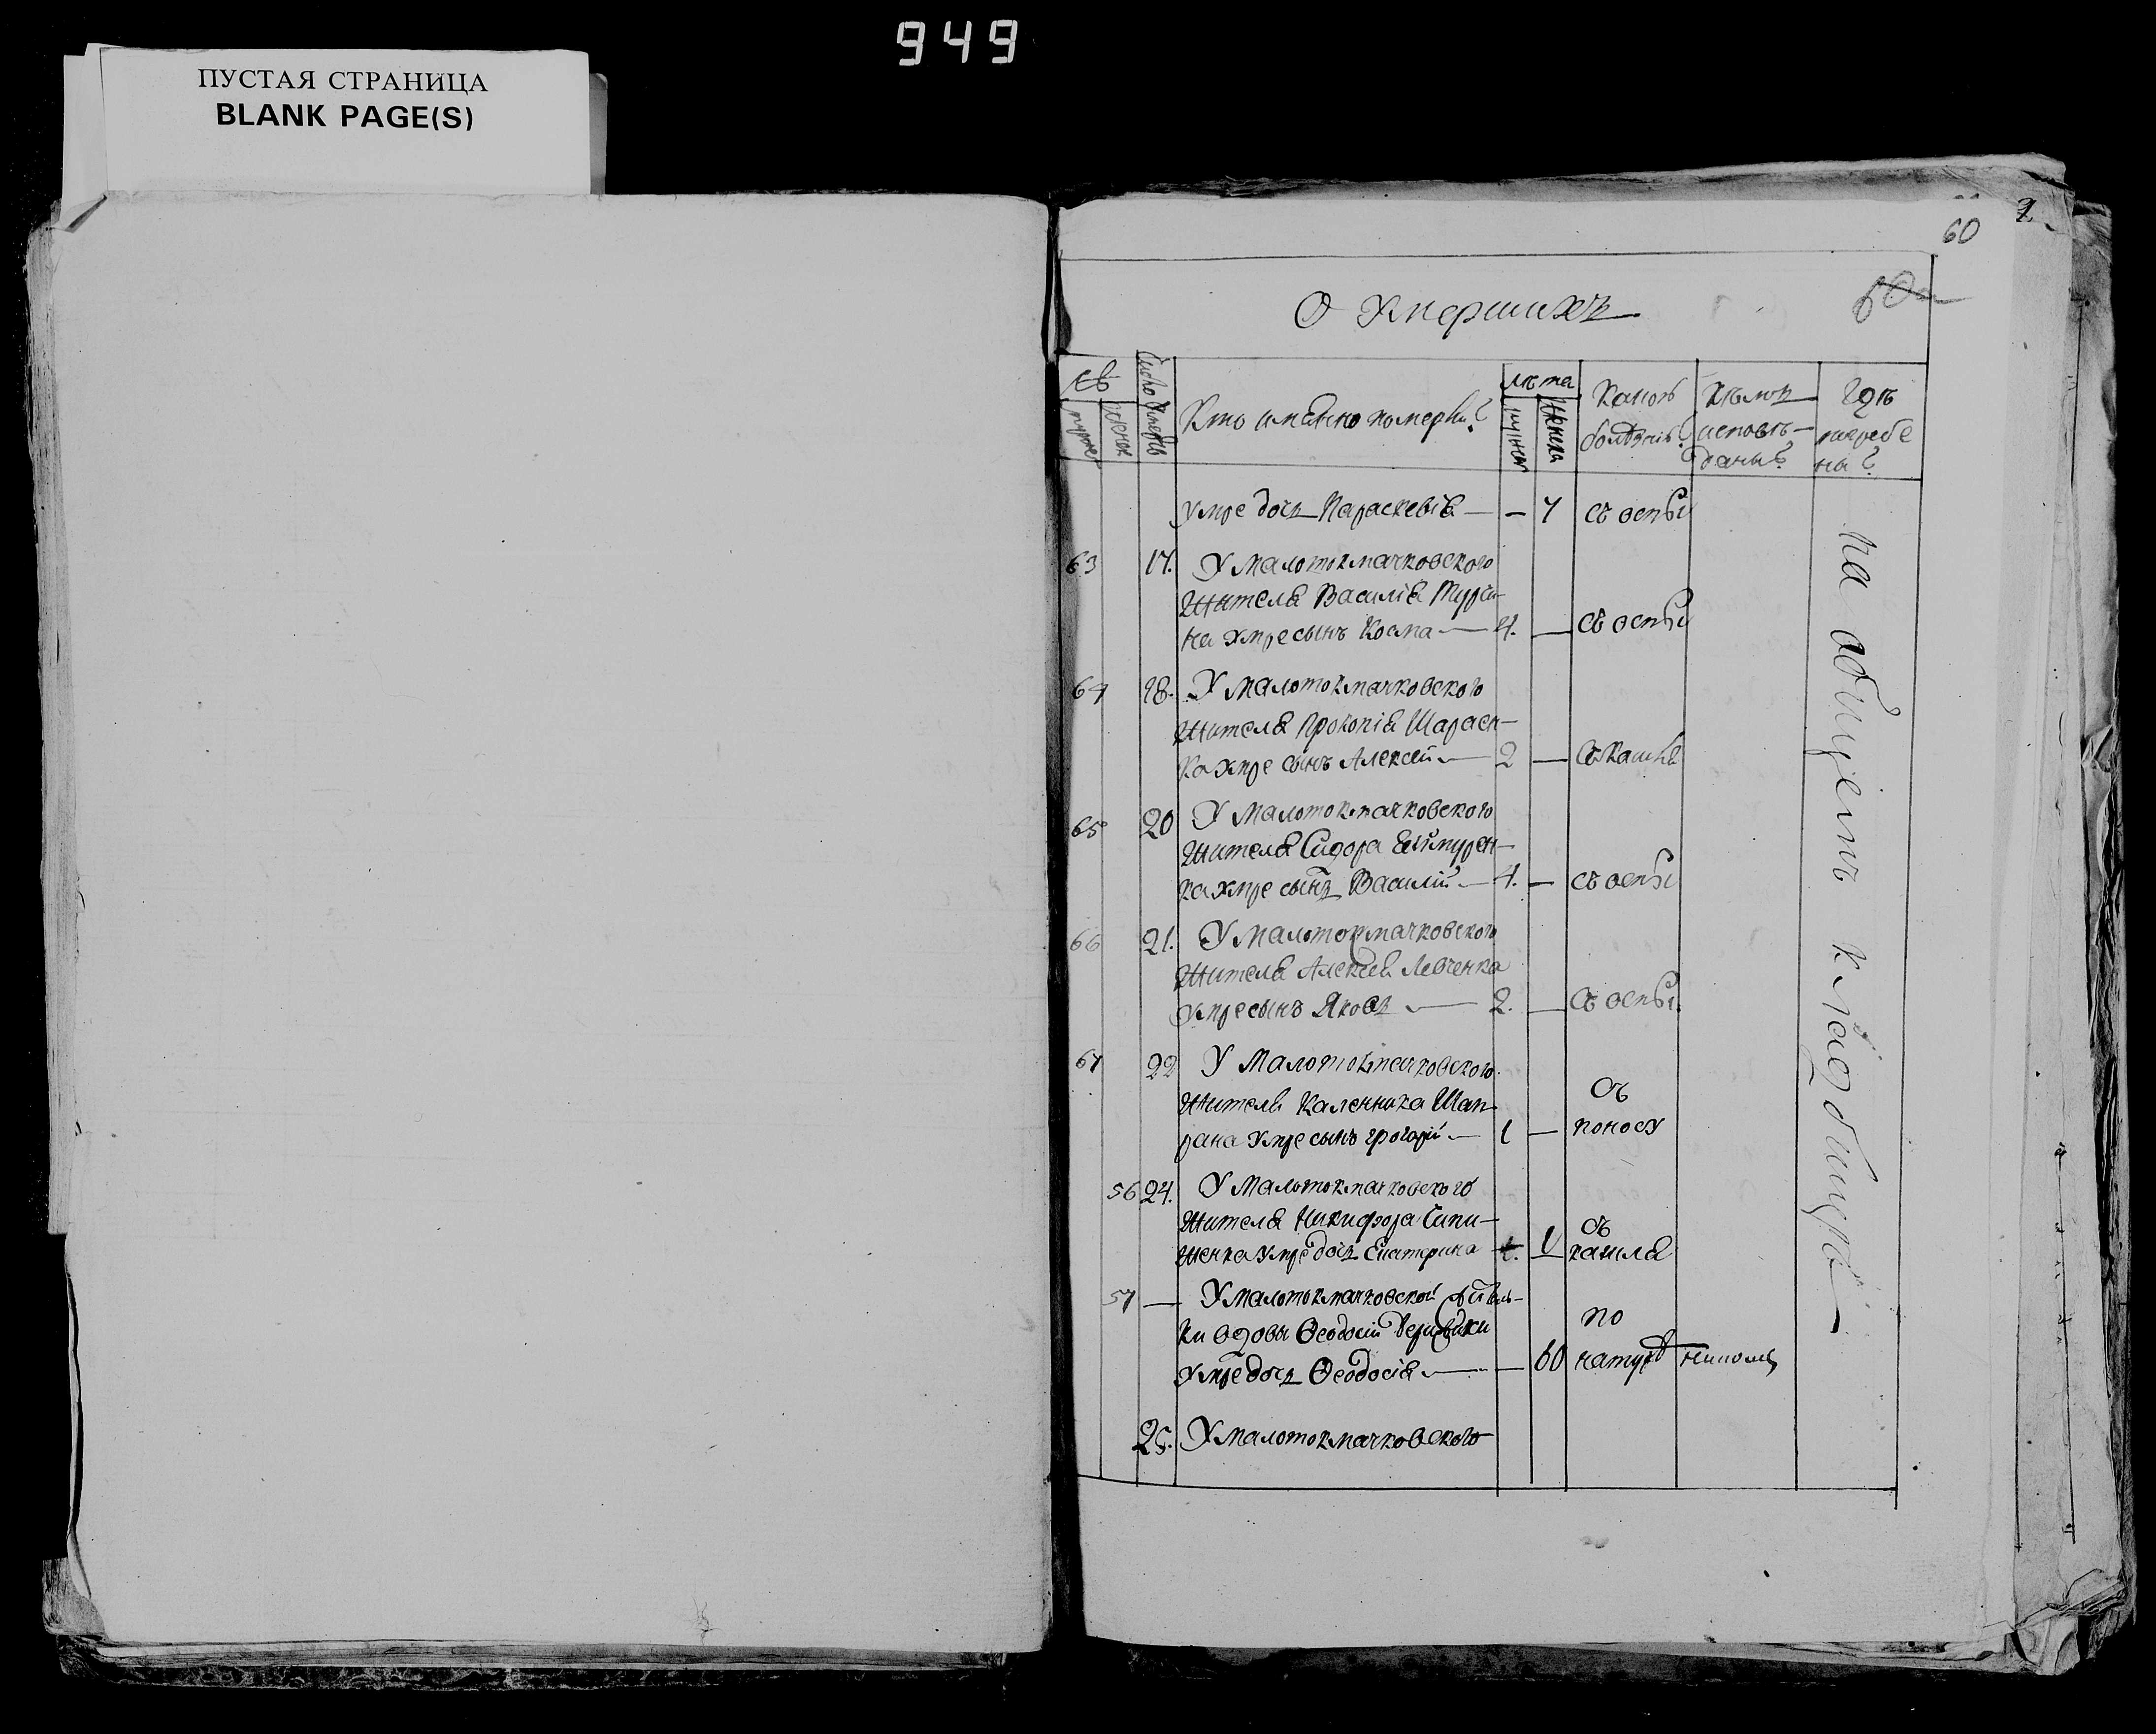 949
ПУСТАЯ СТРАНИЦА
BLANK PAGE(S)
60
60
О Умершихъ
Число Умерш
Кто имянно померли?
лѣта
Какою
болѣзнію?
Кѣмъ
исповѣ-
даны?
Гдѣ
погребе
ны?
умре дочь Параскевiя — — 4 съ оспы
63 17. У малотокмачковского
жителя Василiя
на умре сынъ Косма — 4. — съ оспы
64 18. У малотокмачковского
жителя Прокопiя Шараен-
ка умре сынъ Алексей — 2 — съ кашля
65 20 У малотокмачковского
жителя Сидора
ка умре сынъ Василiй — 4. — съ оспы
66 21. У малотокмачковского
жителя Алексея Левченка
умре сынъ Яковъ — 2. — съ оспы
67 22 У малотокмачковского
жителя Каленника Шап-
рана умре сынъ Григорiй — 1 — съ
поносу
56 24. У малотокмачковского
жителя Никифора Сипи-
женка умре дочь Екатерина 1 съ
кашля
57 — У малотокмачковской
ки вдовы Феодосiи
умре дочь Феодосiя — — 60 по
натурѣ
25. У малотокмачковского
на общемъ кладбищѣ